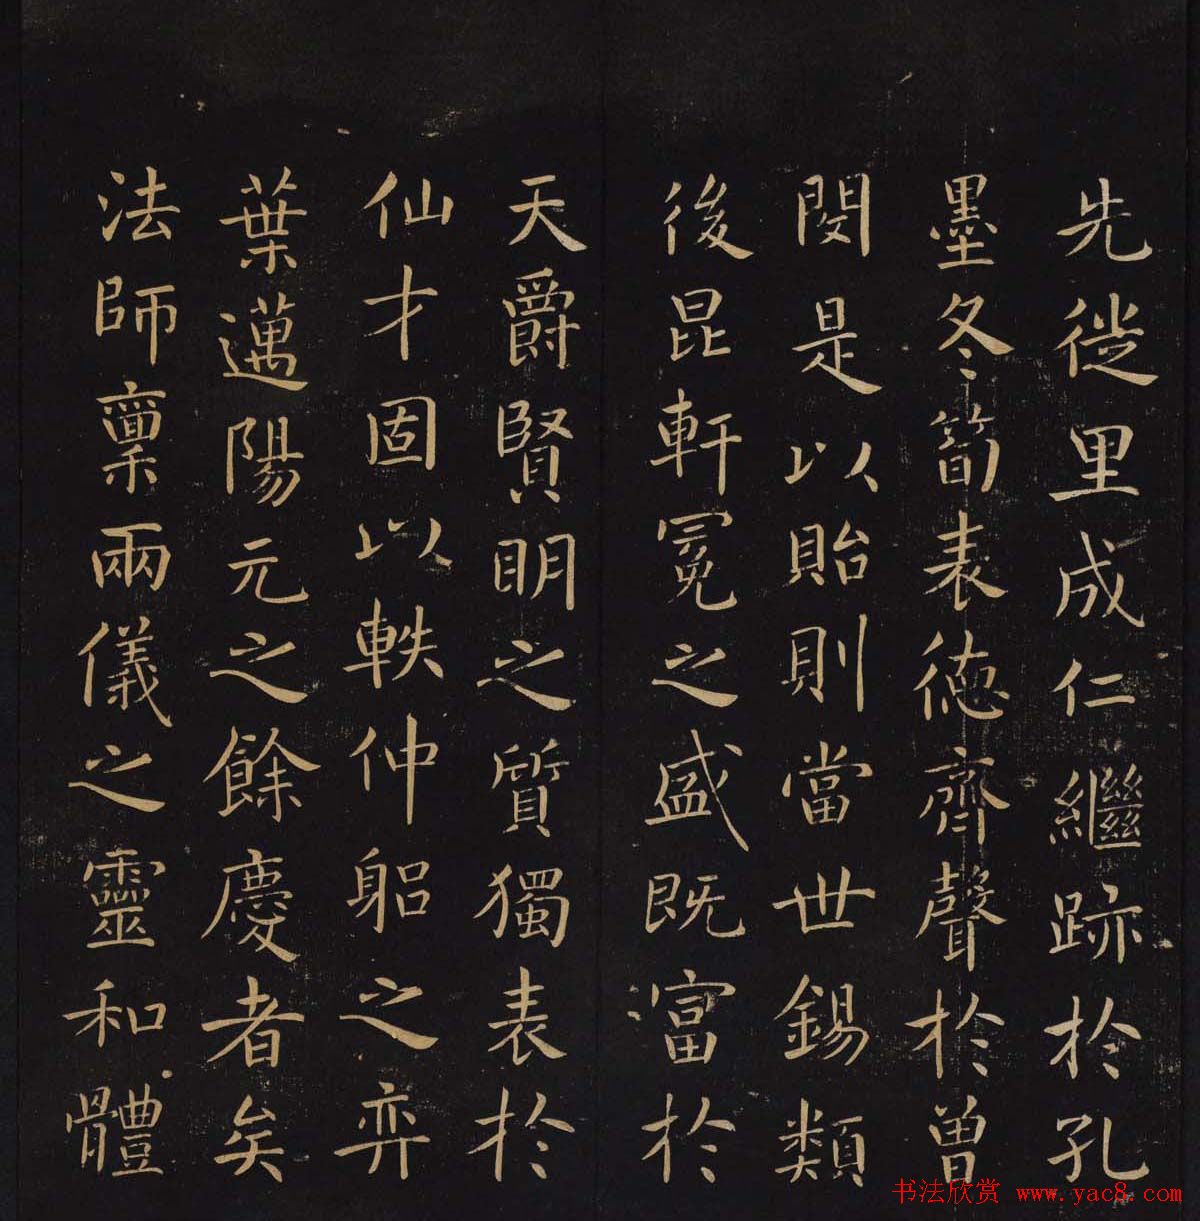 先徙里成仁繼跡於孔
墨冬筍表德齊聲於曾
閔是以貽則當世錫類
後昆軒冕之盛既富於
天爵賢明之質獨表於
仙才固以軼仲躳之弈
葉邁陽元之餘慶者矣
法師稟兩儀之靈和體
书法欣赏 www.yac8.com